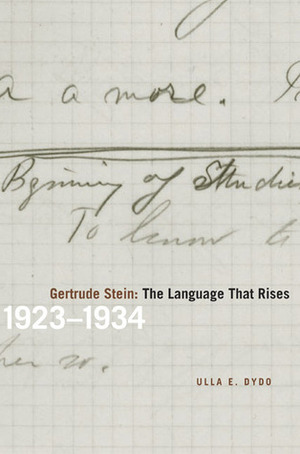 a a more.
Bginning of Studies
To know to
Gertrude Stein: The Language That Rises
1923–1934
her w.
ULLA E. DYDO